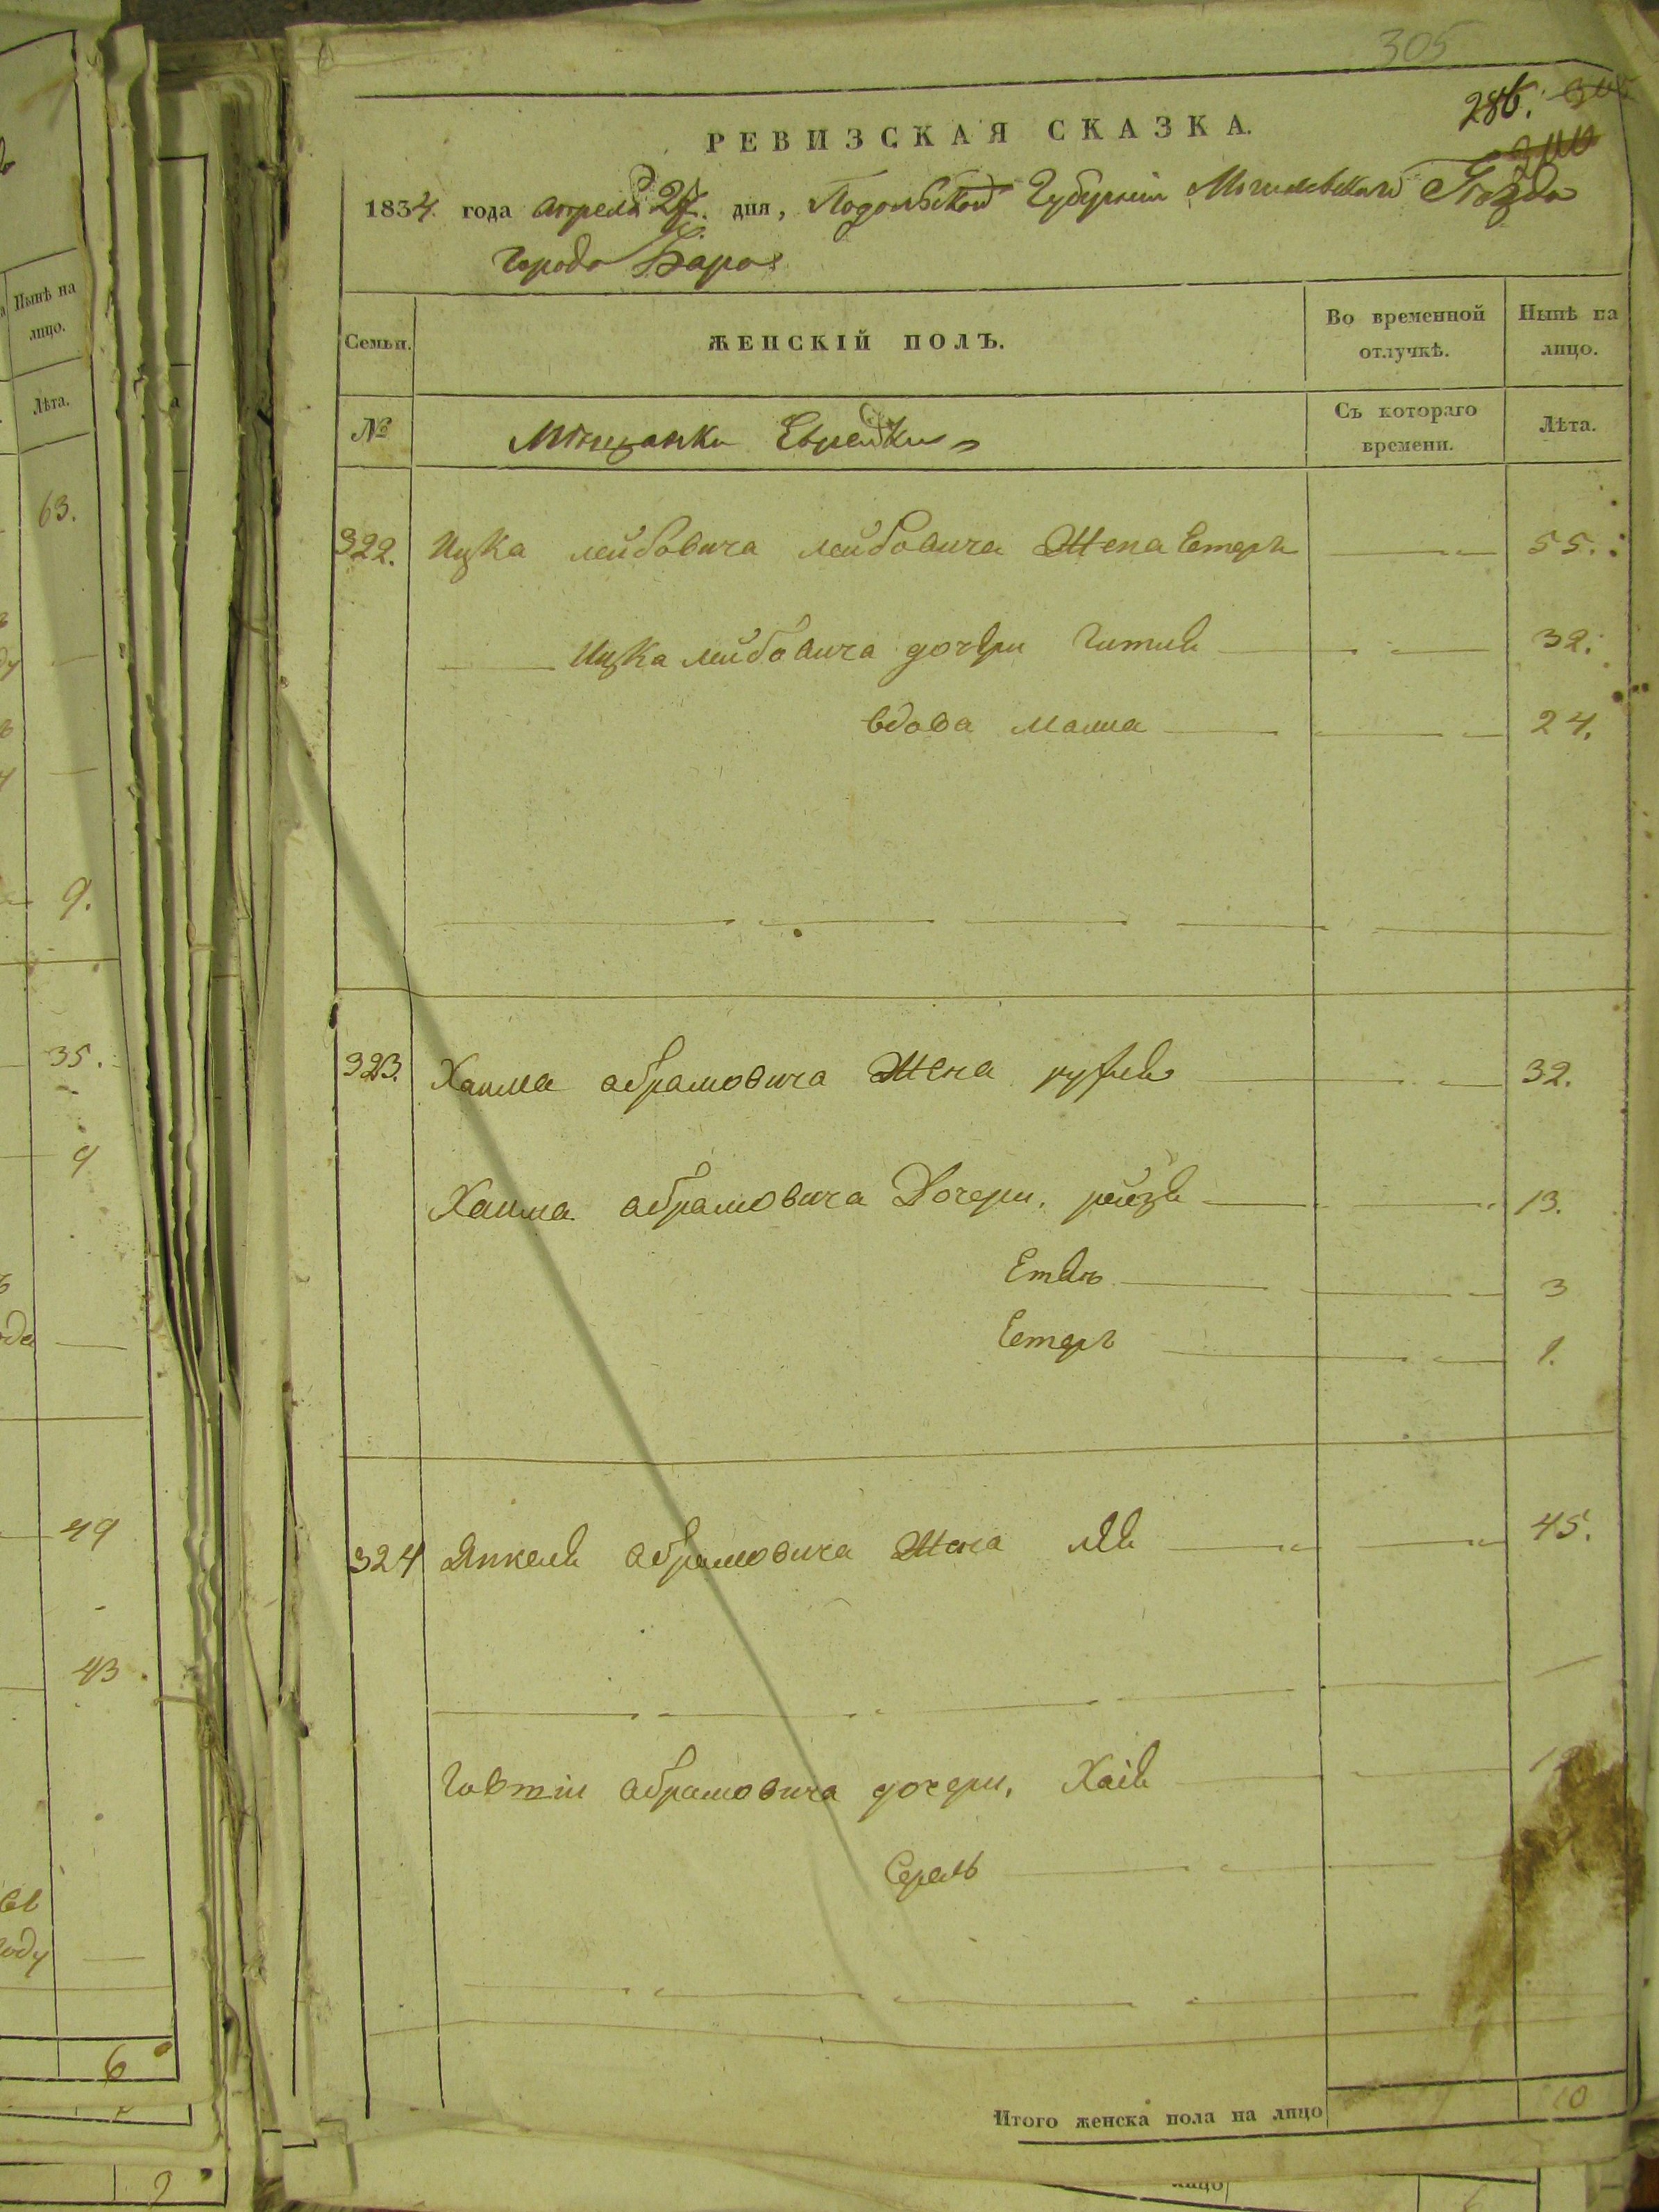 305
286.
РЕВИЗСКАЯ СКАЗКА.
1834. года апреля 27. дня, Подольской Губернии Могилевскаго Повѣда
города Бара
Семьи. ЖЕНСКІЙ ПОЛЪ. Во временной отлучкѣ. Нынѣ на лицо.
№ Мѣщанки Еврейки Съ котораго времени. Лѣта.
322. Ицка лейбовича лейбовича Жена Естеръ 55.
Ицка лейбовича дочери Гитля 32.
вдова малка 24.
323. Хаима абрамовича Жена рухля 32.
Хаима абрамовича Дочери. рейзя 13.
Етля 3
Естеръ 1.
324 Янкеля абрамовича Жена лея 45.
абрамовича дочери, Хая
Серель
Итого женска пола на лицо 10
Нынѣ на
лицо.
Лѣта.
63.
9.
35.
9
49
43
6